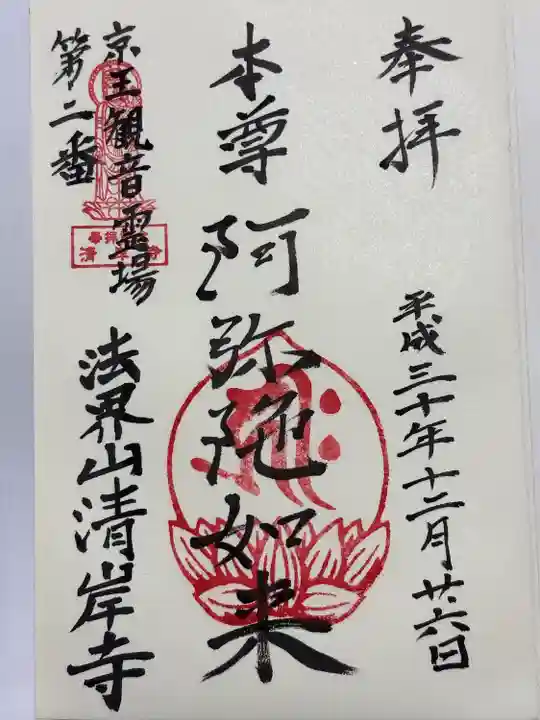 奉拝
平成三十年十二月廿六日
本尊 阿弥陀如来
京王観音霊場
第二番
法界山清岸寺